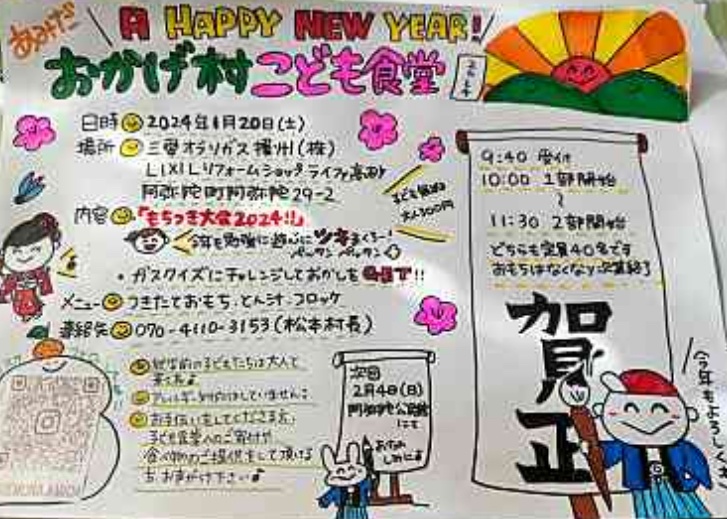 あみだ
A HAPPY NEW YEAR!
おかげ村こども食堂
日時 2024年1月20日(土)
場所 三愛オブリガス播州(株)
LIXILリフォームショップ ライファ高砂
阿弥陀町阿弥陀29-2
こども無料
大人300円
内容 「もちつき大会2024!!」
今年も勉強に遊びにツキまくろー!
ペッタン ペッタン
・ガスクイズにチャレンジしておかしをGET!!
メニュー つきたておもち・とん汁・コロッケ
連絡先 070-4110-3153(松本村長)
就学前の子どもたちは大人と
来てね♪
アレルギー対応はしていません
お手伝いをしてくださる方、
子ども食堂へのご寄付や
食べ物のご提供をして頂ける
方 お声がけ下さい♪
次回
2月4日(日)
阿弥陀公民館
にて
おたのしみに♪
9:40 受付
10:00 1部開始
~
11:30 2部開始
どちらも定員40名です
おもちはなくなり次第終了
賀正